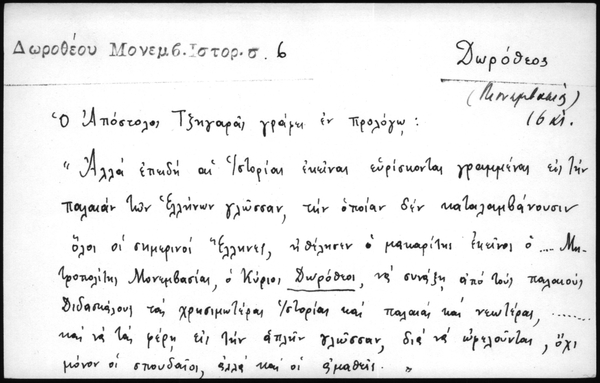 Δωροθέου Μονεμβ. Ιστορ. σ. 6
Δωρόθεος
(Μονεμβασίας)
16 αἰ.
Ὁ Ἀπόστολος Τζηγαρᾶς γράφει ἐν προλόγῳ :
"Ἀλλὰ ἐπειδὴ αἱ Ἱστορίαι ἐκεῖναι εὑρίσκονται γραμμέναι εἰς τὴν
παλαιὰν τῶν Ἑλλήνων γλῶσσαν, τὴν ὁποίαν δὲν καταλαμβάνουσιν
ὅλοι οἱ σημερινοὶ Ἕλληνες, ἠθέλησεν ὁ μακαρίτης ἐκεῖνος ὁ .... Μη-
τροπολίτης Μονεμβασίας, ὁ Κύριος Δωρόθεος, νὰ συνάξῃ ἀπὸ τοὺς παλαιοὺς
Διδασκάλους τὰς χρησιμωτέρας Ἱστορίας καὶ παλαιὰς καὶ νεωτέρας, ........
καὶ νὰ τὰς φέρῃ εἰς τὴν ἁπλῆν γλῶσσαν, διὰ νὰ ὠφελοῦνται, ὄχι
μόνον οἱ σπουδαῖοι, ἀλλὰ καὶ οἱ ἀμαθεῖς. "